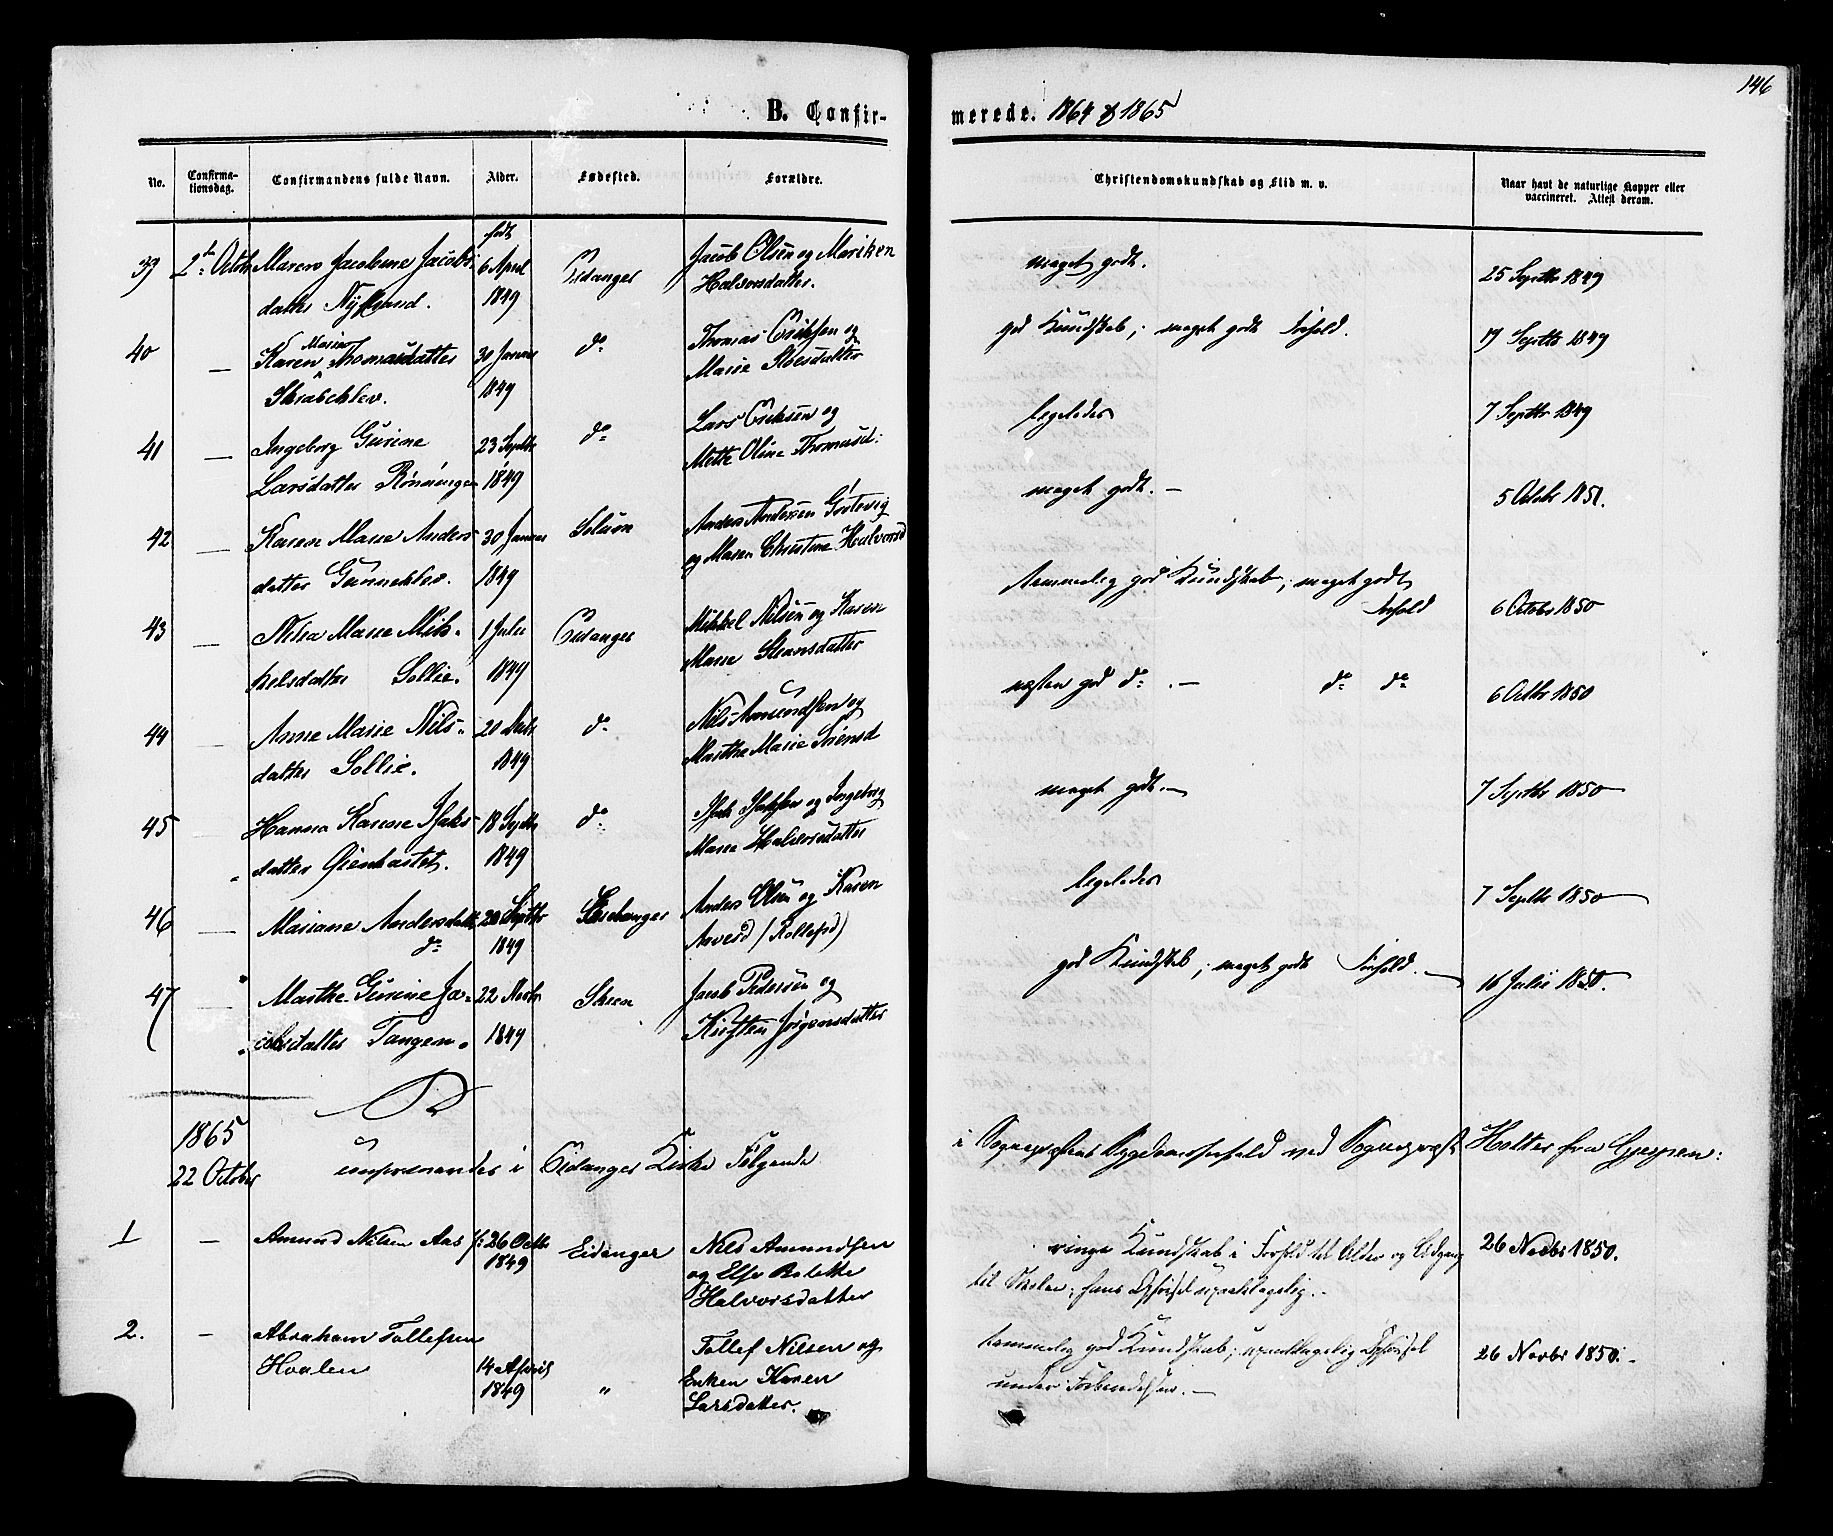 146
B. Confir-
merede. 1864 & 1865
No.
Confirma-
tionsdag.
Confirmandens fulde Navn.
Alder.
Fødested.
Forældre.
Christendomskundskab og Flid m. v.
Naar havt de naturlige Kopper eller
vaccineret. Attest derom.
født
39 2de Octob Maren Jacobine Jacobs- 6 April Eidanger Jacob Olsen og Mariken meget godt. 25 Septbr 1849
datter Nystrand. 1849 Halvorsdatter.
40 — Karen Maria Thomasdatter 30 Januar do Thomas Eriksen og god Kundskab; meget godt Forhold. 19 Septbr 1849
Skrabeklev. 1849 Marie
41 — Ingeborg Gurine 23 Septbr do Lars Eriksen og ligeledes 7 Septbr 1849
Larsdatter Rønningen 1849 Mette Oline Thomasd:
42 — Karen Marie Anders- 30 Januar Solum Anders Andersen og Maren Christine Halvorsd meget godt. — 5 Octobr 1851.
datter Gunneklev. 1849
43 — Marie Mik- 1 Julii Eidanger Mikkel Nilsen og Karen temmelig god Kundskab; meget godt Forhold 6 Octobr 1850
kelsdatter Sollie. 1849 Marie
44 — Anne Marie Nils- 20 1849 do Nils Amundsen og næsten god do. — do do 6 Octbr 1850
datter Sollie. Marthe Marie
45 — Hanna Karine Isaks- 18 Septbr do Isak Isaksen og Ingeborg meget godt. — 7 Septbr 1850
datter 1849 Marie Halvorsdatter
46 — Mariane Andersdatter 20 Septbr Eidanger Anders Olsen og Karen ligeledes 7 Septbr 1850
do 1849
47 — Marthe Gurine Ja- 22 Skien Jacob Pedersen og god Kundskab; meget godt Forhold. — 16 Julii 1850.
cobsdatter Tangen. 1849 Kirsten Jørgensdatter
1865
22 October confirmeredes i Eidanger Kirke Følgende i Sognepræstens ved Sognepræst Holter fra Gjerpen:
1 — Amund Nilsen Aas f: 26 Octbr Eidanger Nils Amundsen ringe Kundskab i Forhold til Alder og Adgang 26 Novbr 1850.
1849 og Else Bolette til Skolen; hans Opførsel upaaklagelig.
Halvorsdatter
2. — Abraham Tollefsen 14 April " Tollef Nilsen og temmelig god Kundskab; upaaklagelig Opførsel 26 Novbr 1850. —
Hvalen 1849 Enken Karen under Forberedelsen. —
Larsdatter.